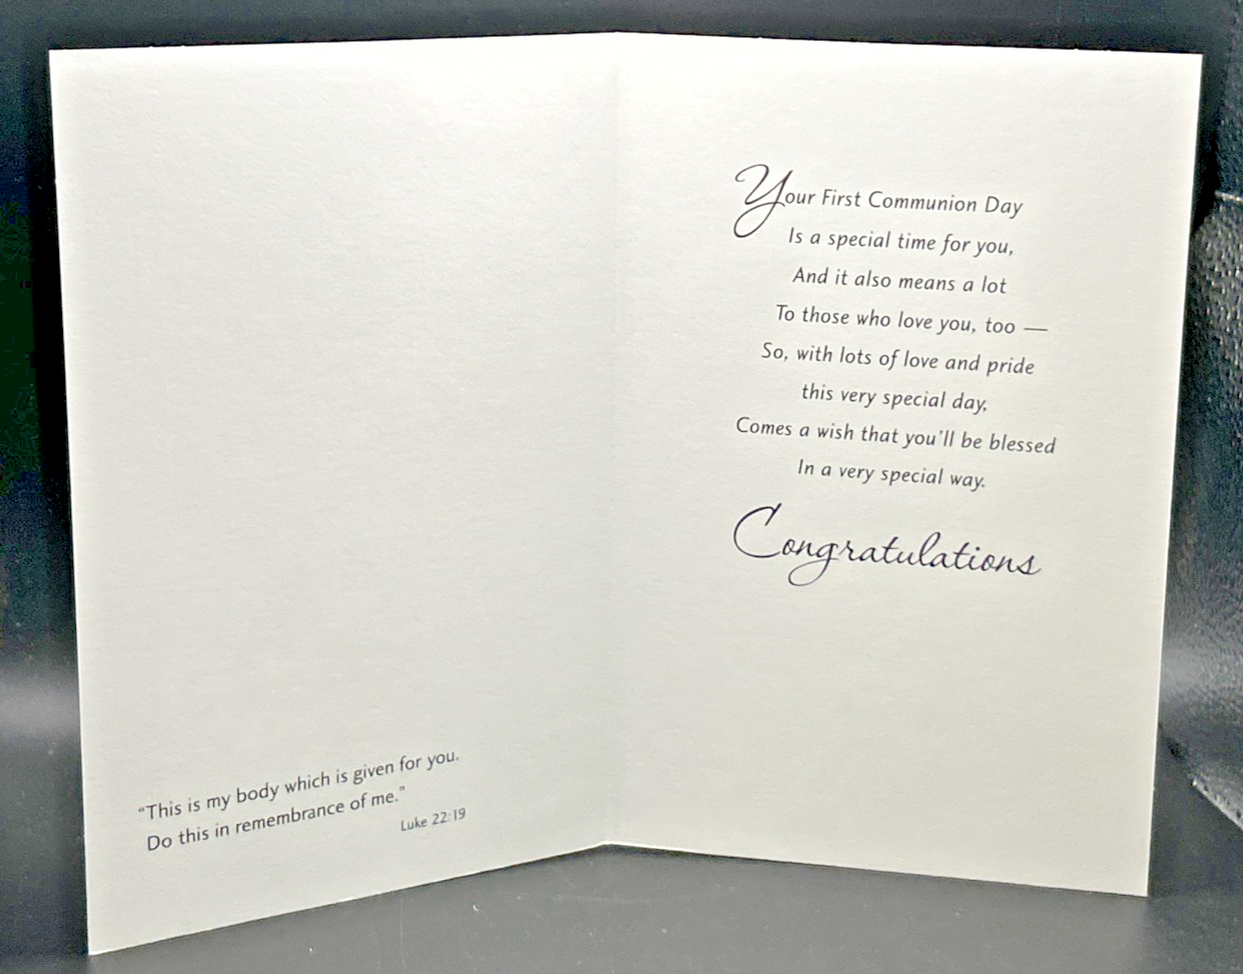 “This is my body which is given for you.
Do this in remembrance of me.”
Luke 22:19
Your First Communion Day
Is a special time for you,
And it also means a lot
To those who love you, too —
So, with lots of love and pride
this very special day,
Comes a wish that you'll be blessed
In a very special way.
Congratulations